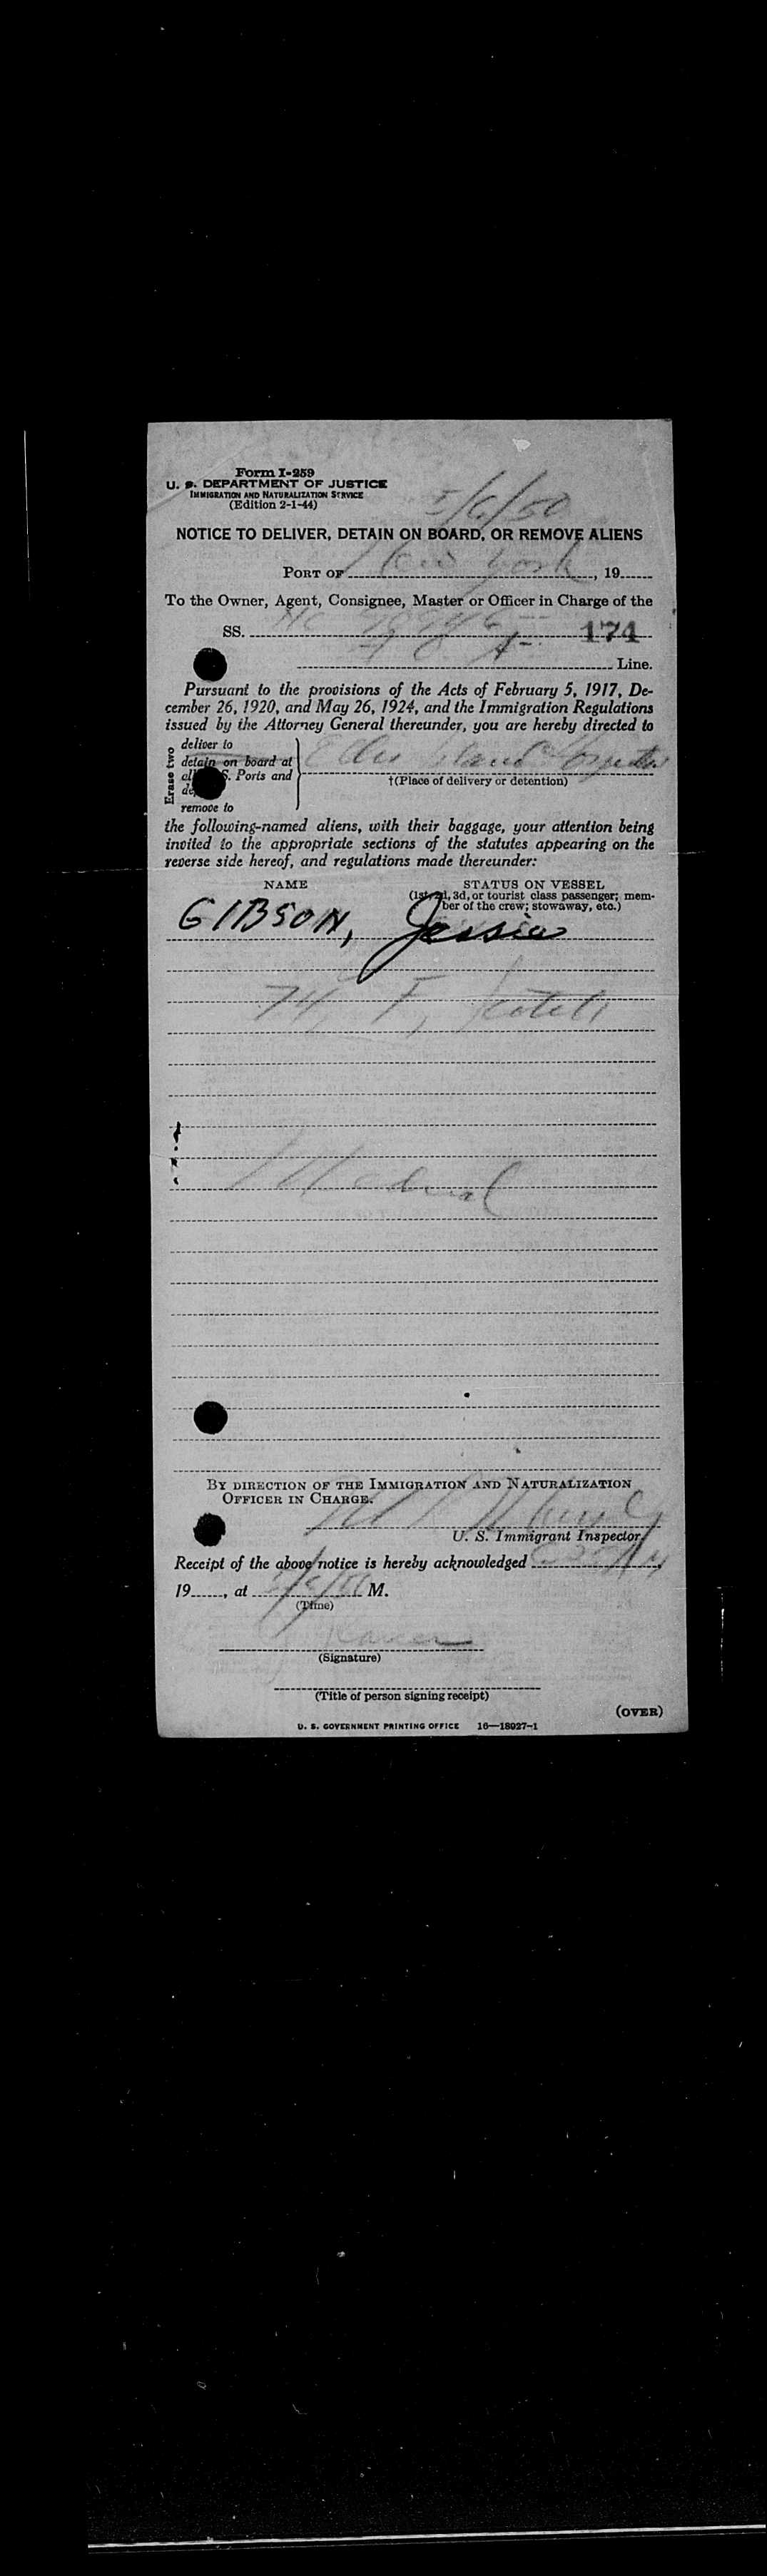 Form I-259
U. S. DEPARTMENT OF JUSTICE
IMMIGRATION AND NATURALIZATION SERVICE
(Edition 2-1-44)
5/6/50
NOTICE TO DELIVER, DETAIN ON BOARD, OR REMOVE ALIENS
PORT OF New York, 19
To the Owner, Agent, Consignee, Master or Officer in Charge of the
SS. 174
Line.
Pursuant to the provisions of the Acts of February 5, 1917, De-
cember 26, 1920, and May 26, 1924, and the Immigration Regulations
issued by the Attorney General thereunder, you are hereby directed to
Erase two
deliver to
detain on board at
all U. S. Ports and
remove to
Ellis Island
†(Place of delivery or detention)
the following-named aliens, with their baggage, your attention being
invited to the appropriate sections of the statutes appearing on the
reverse side hereof, and regulations made thereunder:
NAME STATUS ON VESSEL
(1st, 2d, 3d, or tourist class passenger; mem-
ber of the crew; stowaway, etc.)
GIBSON, Jessie
74, F, Scotch
Medical
BY DIRECTION OF THE IMMIGRATION AND NATURALIZATION
OFFICER IN CHARGE.
U. S. Immigrant Inspector.
Receipt of the above notice is hereby acknowledged
19, at M.
(Time)
(Signature)
(Title of person signing receipt)
(OVER)
U. S. GOVERNMENT PRINTING OFFICE 16—18027-1